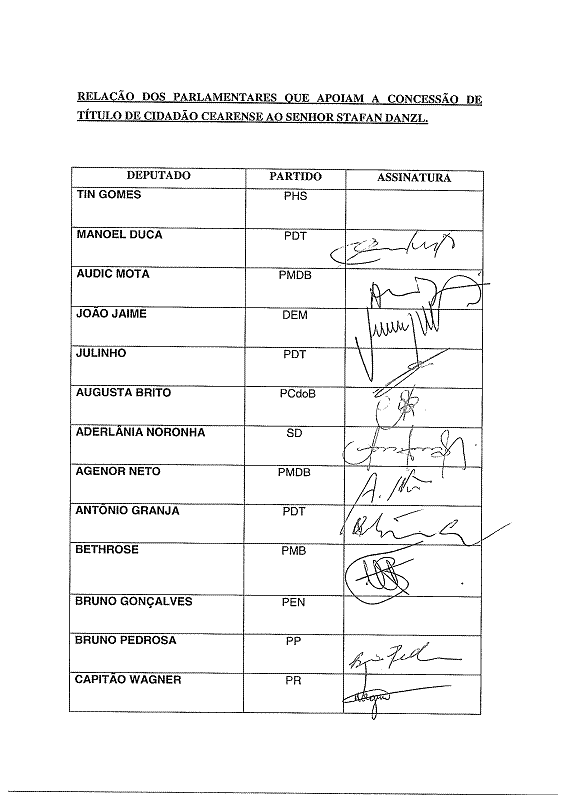 RELAÇÃO DOS PARLAMENTARES QUE APOIAM A CONCESSÃO DE
TÍTULO DE CIDADÃO CEARENSE AO SENHOR STAFAN DANZL.
DEPUTADO PARTIDO ASSINATURA
TIN GOMES PHS
MANOEL DUCA PDT
AUDIC MOTA PMDB
JOÃO JAIME DEM
JULINHO PDT
AUGUSTA BRITO PCdoB
ADERLÂNIA NORONHA SD
AGENOR NETO PMDB
ANTÔNIO GRANJA PDT
BETHROSE PMB
BRUNO GONÇALVES PEN
BRUNO PEDROSA PP
CAPITÃO WAGNER PR